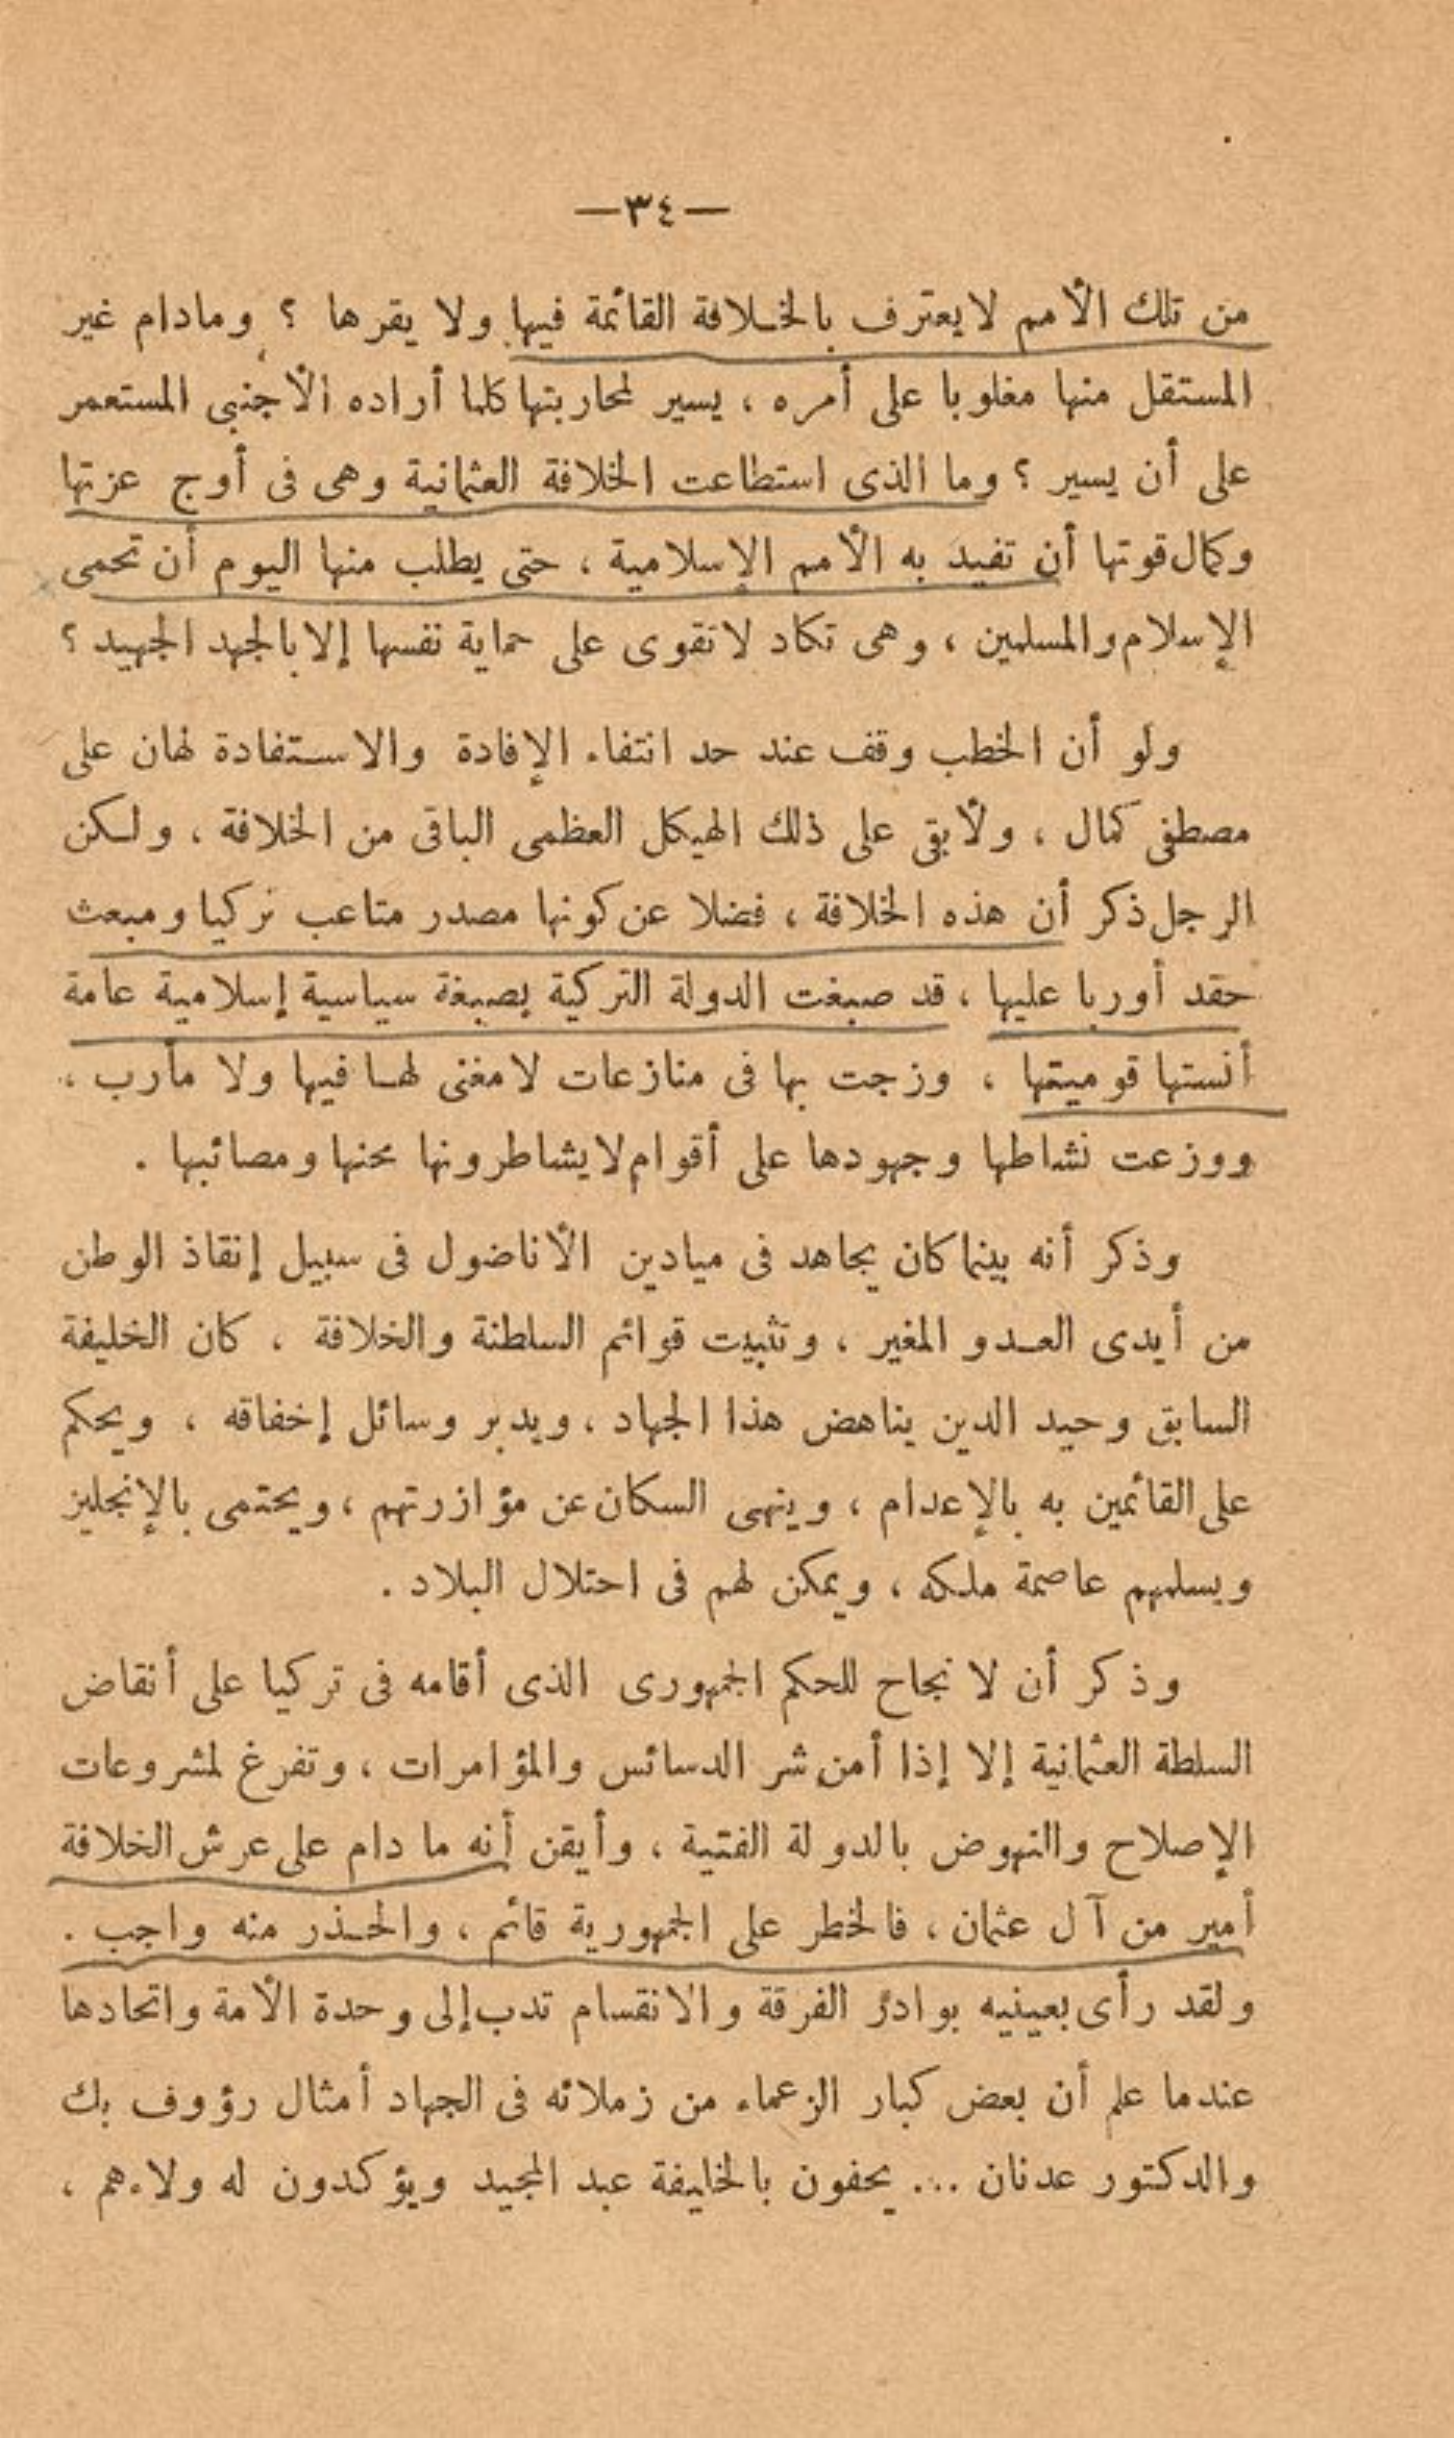 —٣٤—
من تلك الأمم لا يعترف بالخلافة القائمة فيها ولا يقرها ؟ ومادام غير
المستقل منها مغلوبا على أمره ، يسير لمحاربتها كلما أراده الأجنبى المستعمر
على أن يسير ؟ وما الذى استطاعت الخلافة العثمانية وهى فى أوج عزتها
وكمال قوتها أن تفيد به الأمم الإسلامية ، حتى يطلب منها اليوم أن تحمى
الإسلام والمسلمين ، وهى تكاد لا تقوى على حماية نفسها إلا بالجهد الجهيد ؟
ولو أن الخطب وقف عند حد انتفاء الإفادة والاستفادة لهان على
مصطفى كمال ، ولأبقى على ذلك الهيكل العظمى الباقى من الخلافة ، ولكن
الرجل ذكر أن هذه الخلافة ، فضلا عن كونها مصدر متاعب تركيا ومبعث
حقد أوربا عليها ، قد صبغت الدولة التركية بصبغة سياسية إسلامية عامة
أنستها قوميتها ، وزجت بها فى منازعات لا مغنى لها فيها ولا مأرب ،
ووزعت نشاطها وجهودها على أقوام لا يشاطرونها محنها ومصائبها .
وذكر أنه بينما كان يجاهد فى ميادين الأناضول فى سبيل إنقاذ الوطن
من أيدى العدو المغير ، وتثبيت قوائم السلطنة والخلافة ، كان الخليفة
السابق وحيد الدين يناهض هذا الجهاد ، ويدبر وسائل إخفاقه ، ويحكم
على القائمين به بالإعدام ، وينهى السكان عن مؤازرتهم ، ويحتمى بالإنجليز
ويسلمهم عاصمة ملكه ، ويمكن لهم فى احتلال البلاد .
وذكر أن لا نجاح للحكم الجمهورى الذى أقامه فى تركيا على أنقاض
السلطة العثمانية إلا إذا أمن شر الدسائس والمؤامرات ، وتفرغ لمشروعات
الإصلاح والنهوض بالدولة الفتية ، وأيقن أنه ما دام على عرش الخلافة
أمير من آل عثمان ، فالخطر على الجمهورية قائم ، والحذر منه واجب .
ولقد رأى بعينيه بوادر الفرقة والانقسام تدب إلى وحدة الأمة واتحادها
عندما علم أن بعض كبار الزعماء من زملائه فى الجهاد أمثال رؤوف بك
والدكتور عدنان ... يحفون بالخليفة عبد المجيد ويؤكدون له ولاءهم ،